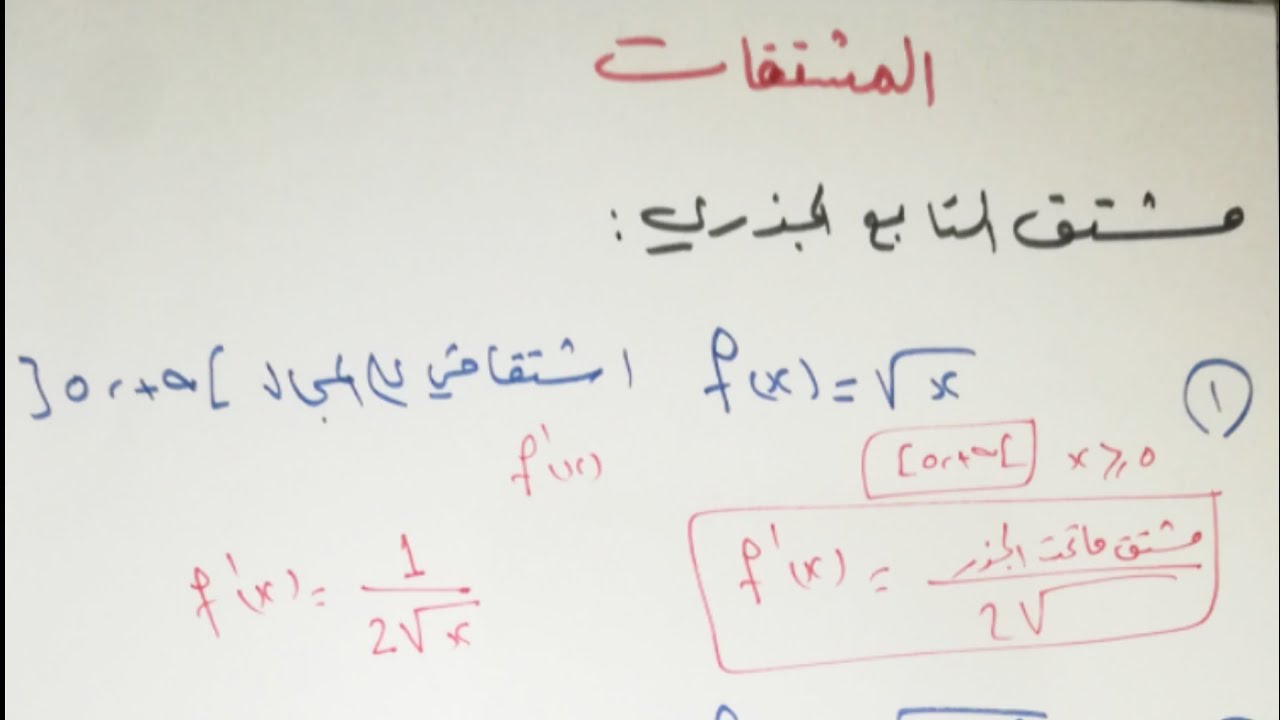 المشتقات
مشتق التابع الجذري :
① f(x) = √x اشتقاقي على المجال ]0, +∞[
x ≥ 0 [0, +∞[
f'(x)
f'(x) = مشتق ماتحت الجذر / 2√
f'(x) = 1 / 2√x